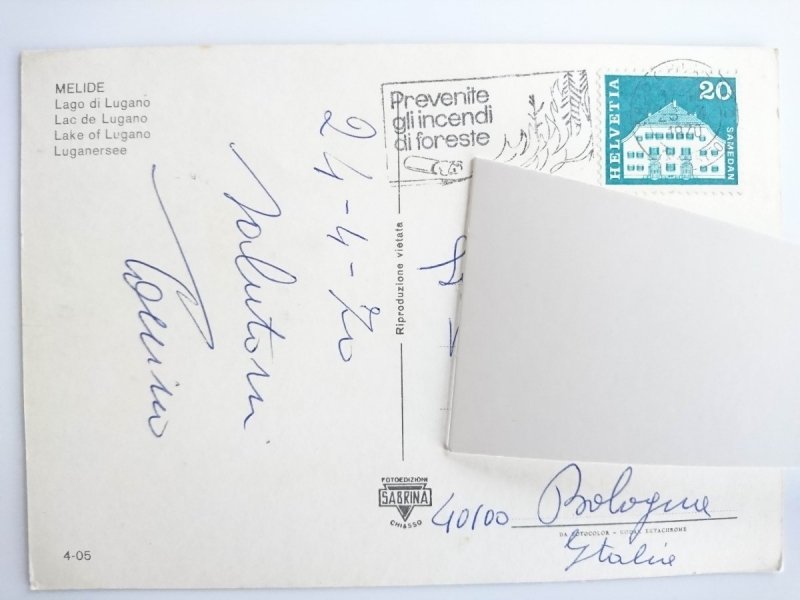 MELIDE
Lago di Lugano
Lac de Lugano
Lake of Lugano
Luganersee
Prevenite
gli incendi
di foreste
HELVETIA
20
SAMEDAN
1970
24-4-70
Salutoni
Riproduzione vietata
FOTOEDIZIONI
SABRINA
CHIASSO
40100 Bologna
Italia
4-05